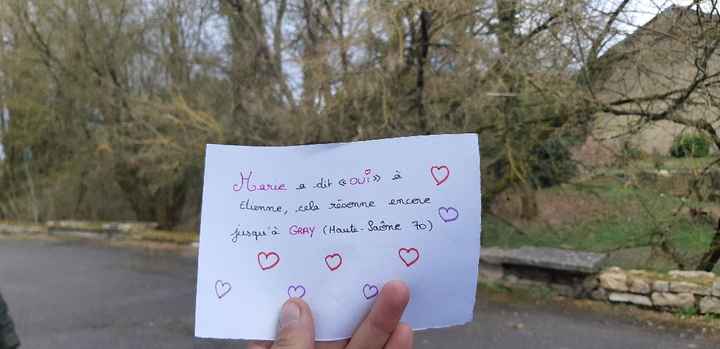 Marie a dit « OUI » à
Etienne, cela résonne encore
jusqu'à GRAY (Haute-Saône 70)